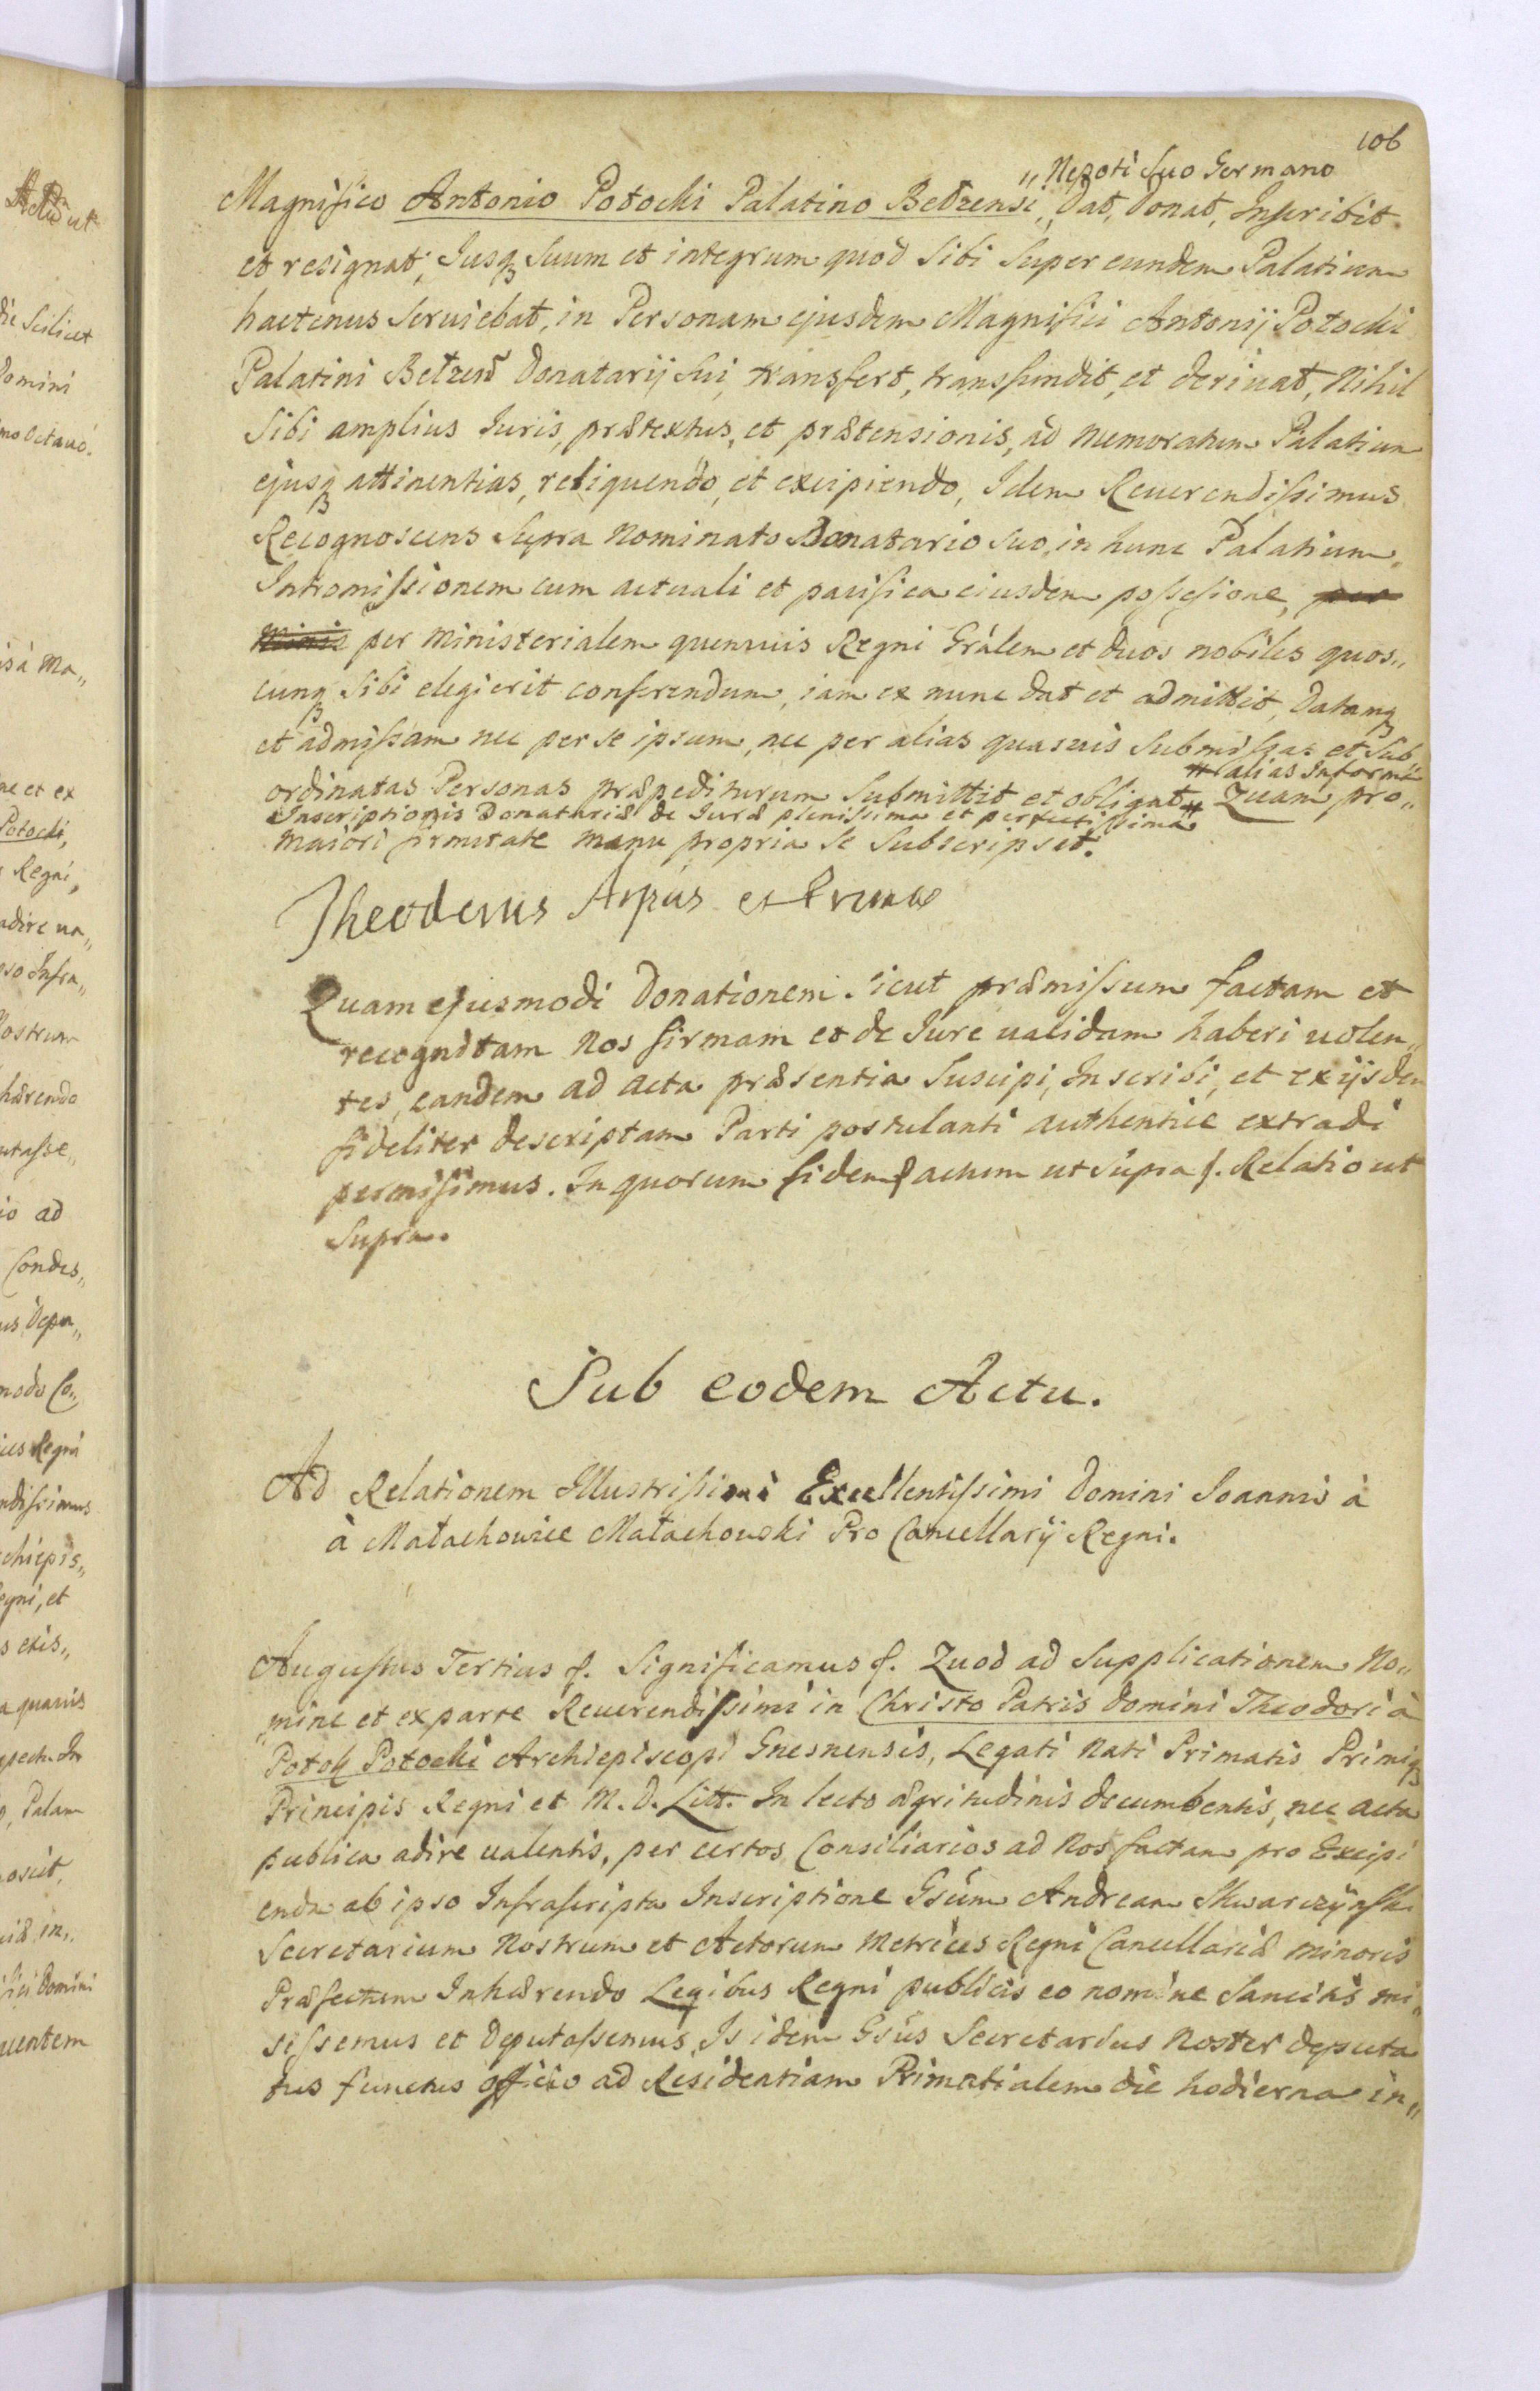 106
„Nepoti Suo Germano
Magnifico Antonio Potocki Palatino Bełzensi, Dat, Donat, Inscribit
et resignat, Jusq₃ Suum et integrum quod Sibi Super eundem Palatium
hactenus Seruiebat, in Personam ejusdem Magnifici Antonij Potocki
Palatini Bełzen̄ Donatarij Sui, transfert, transfundit, et deriuat, Nihil
Sibi amplius Iuris, prætextus, et prætensionis, ad memoratum Palatium
ejusq₃ attinentias, reliquendo, et excipiendo, Idem Reuerendissimus
Recognoscens Supra Nominato Donatario Suo, in hunc Palatium,
Intromissionem cum actuali et pacifica eiusdem possesione,
per Ministerialem quemuis Regni Grálem et duos nobiles quos„
cunq₃ Sibi elegierit conferendum, iam ex nunc dat et admittit, Datamq₃
et admissam nec per se ipsum, nec per alias quasuis Submissas et Sub
ordinatas Personas præpediturum Submittit et obligat # Quam pro„
# alias Informa
Inscriptionis Donatariæ de Iure plenissima et perfectissima #
maiori firmitate manu propria Se Subscripsit.
Theodorus Arpus et Primas
Quam ejusmodi Donationem Sicut præmissum factam et
recognitam Nos firmam et de Jure ualidam haberi uolen„
tes, eandem ad acta præsentia Suscipi, Inscribi, et ex ijsdem
fideliter descriptam Parti postulanti authentice extradi
permisimus. In quorum fidem f. actum ut Supra f. Relatio ut
Supra.
Sub eodem Actu.
Ad Relationem Illustrissimi Excellentissimi Domini Joannis à
à Małachowice Małachowski Pro Cancellarij Regni.
Augustus Tertius f. Significamus f. Quod ad Supplicationem No„
„mine et ex parte Reuerendissimi in Christo Patris Domini Theodori à
Potok Potocki Archiepiscopi Gnesnensis, Legati Nati Primatis Primiq₃
Principis Regni et M. D. Litt. In lecto ægritudinis decumbentis, nec acta
publica adire ualentis, per certos Consiliarios ad Nos factam pro Excipi
enda ab ipso Infrascripta Inscriptione Gsum Andream Skwarczynski
Secretarium Nostrum et Actorum Metrices Regni Cancellariæ minoris
Præfectum Inhærendo Legibus Regni publicis eo nomine Sancitis mi„
sissemus et Deputassemus, Is idem Gsus Secretarius Noster deputa
tus functus officio ad Residentiam Primatialem die hodierna in„